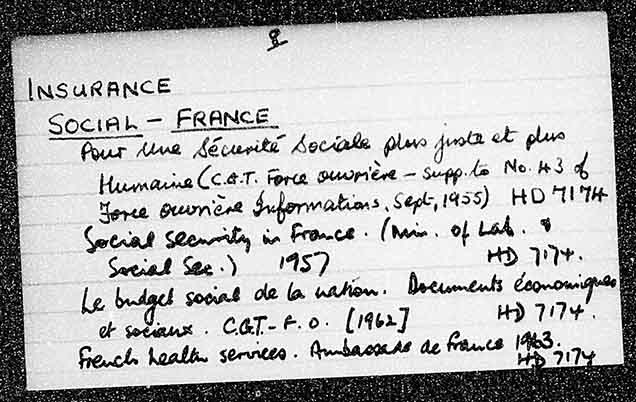 8
INSURANCE
SOCIAL - FRANCE
Pour une Sécurité Sociale plus juste et plus
Humaine (C.G.T. Force ouvrière - supp. to No. 43 of
Force ouvrière Informations, Sept, 1955) HD 7174
Social security in France. (Min. of Lab. &
Social Sec.) 1957 HD 7174.
Le budget social de la nation. Documents économiques
et sociaux. C.G.T.-F.O. [1962] HD 7174.
French health services. Ambassade de France 1963.
HD 7174